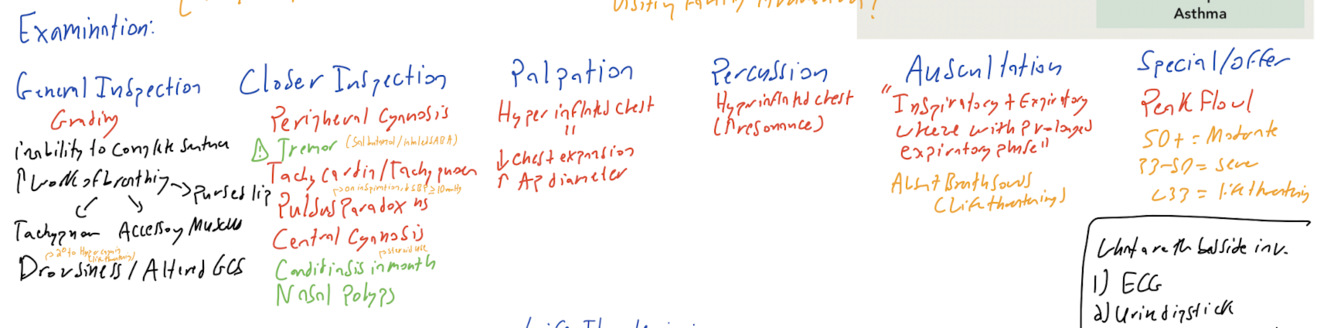 Visiting Family
Asthma
Examination:
General Inspection
Grading
inability to complete sentence
↑ work of breathing → pursed lip
Tachypnoea Accessory Muscle
2° to Hypercapnia
(life threatening)
Drowsiness / Altered GCS
Closer Inspection
Peripheral Cyanosis
Tremor (Salbutamol / inhaled SABA)
Tachycardia/Tachypnoea
on inspiration, ↓ SBP ≥ 10mmHg
Pulsus Paradoxus
Central Cyanosis
steroid use
Candidiasis in mouth
Nasal Polyps
Palpation
Hyperinflated chest
"
↓ Chest expansion
↑ AP diameter
Percussion
Hyperinflated chest
(↑ resonance)
Auscultation
"Inspiratory + Expiratory
wheeze with prolonged
expiratory phase"
Absent Breath Sounds
(Life threatening)
Special/offer
Peak Flow
50+ = Moderate
33-50 = severe
<33 = life threatening
What are the bedside inv.
1) ECG
2) Urine dipstick